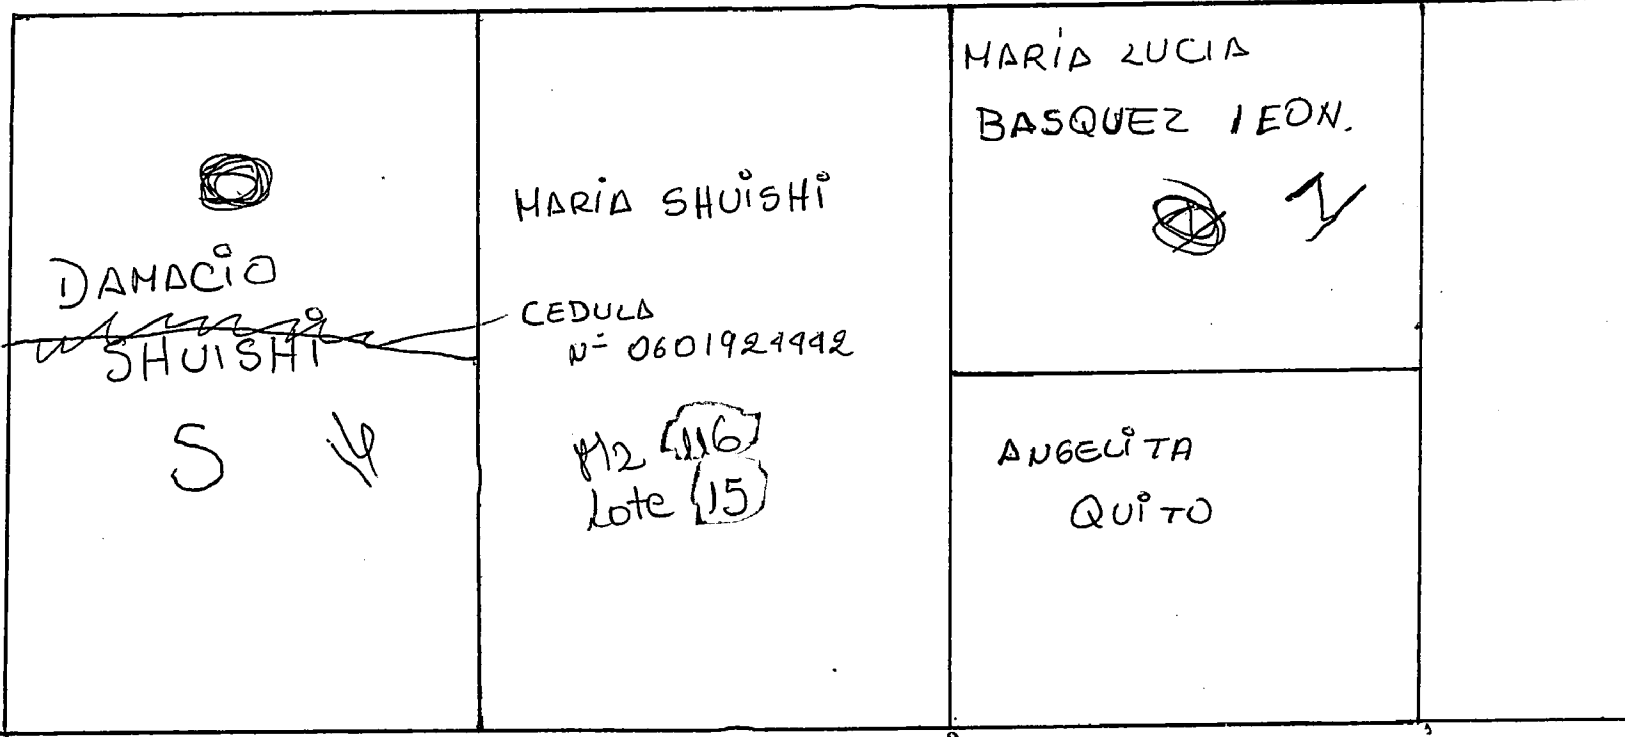 DAMACIO
SHUISHI
S
MARIA SHUISHI
CEDULA
Nº 0601924442
M2 116
Lote 15
MARÍA LUCIA
BASQUEZ LEON.
N
ANGELITA
QUITO